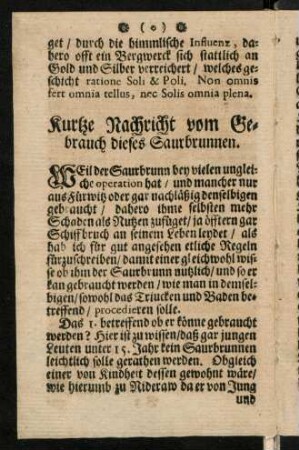 ( o )
get / durch die himmlische Influenz, da-
hero offt ein Bergwerck sich stattlich an
Gold und Silber verreichert / welches ge-
schicht ratione Soli & Poli, Non omnis
fert omnia tellus, nec Solis omnia plena.
Kurtze Nachricht vom Ge-
brauch dieses Saurbrunnen.
WEil der Saurbrunn bey vielen unglei-
che operation hat / und mancher nur
aus Fürwitz oder gar nachläßig denselbigen
gebraucht / dahero ihme selbsten mehr
Schaden als Nutzen zufüget / ja öfftern gar
Schiffbruch an seinem Leben leydet / als
hab ich für gut angesehen etliche Regeln
fürzuschreiben / damit einer gleichwohl wis-
se ob ihm der Saurbrunn nutzlich / und so er
kan gebraucht werden / wie man in demsel-
bigen / sowohl das Trincken und Baden be-
treffend / procedieren solle.
Das 1. betreffend ob er könne gebraucht
werden? Hier ist zu wissen / daß gar jungen
Leuten unter 15. Jahr kein Saurbrunnen
leichtlich solle gerathen werden. Obgleich
einer von Kindheit dessen gewohnt wäre /
wie hierumb zu Nideraw da er von Jung
und